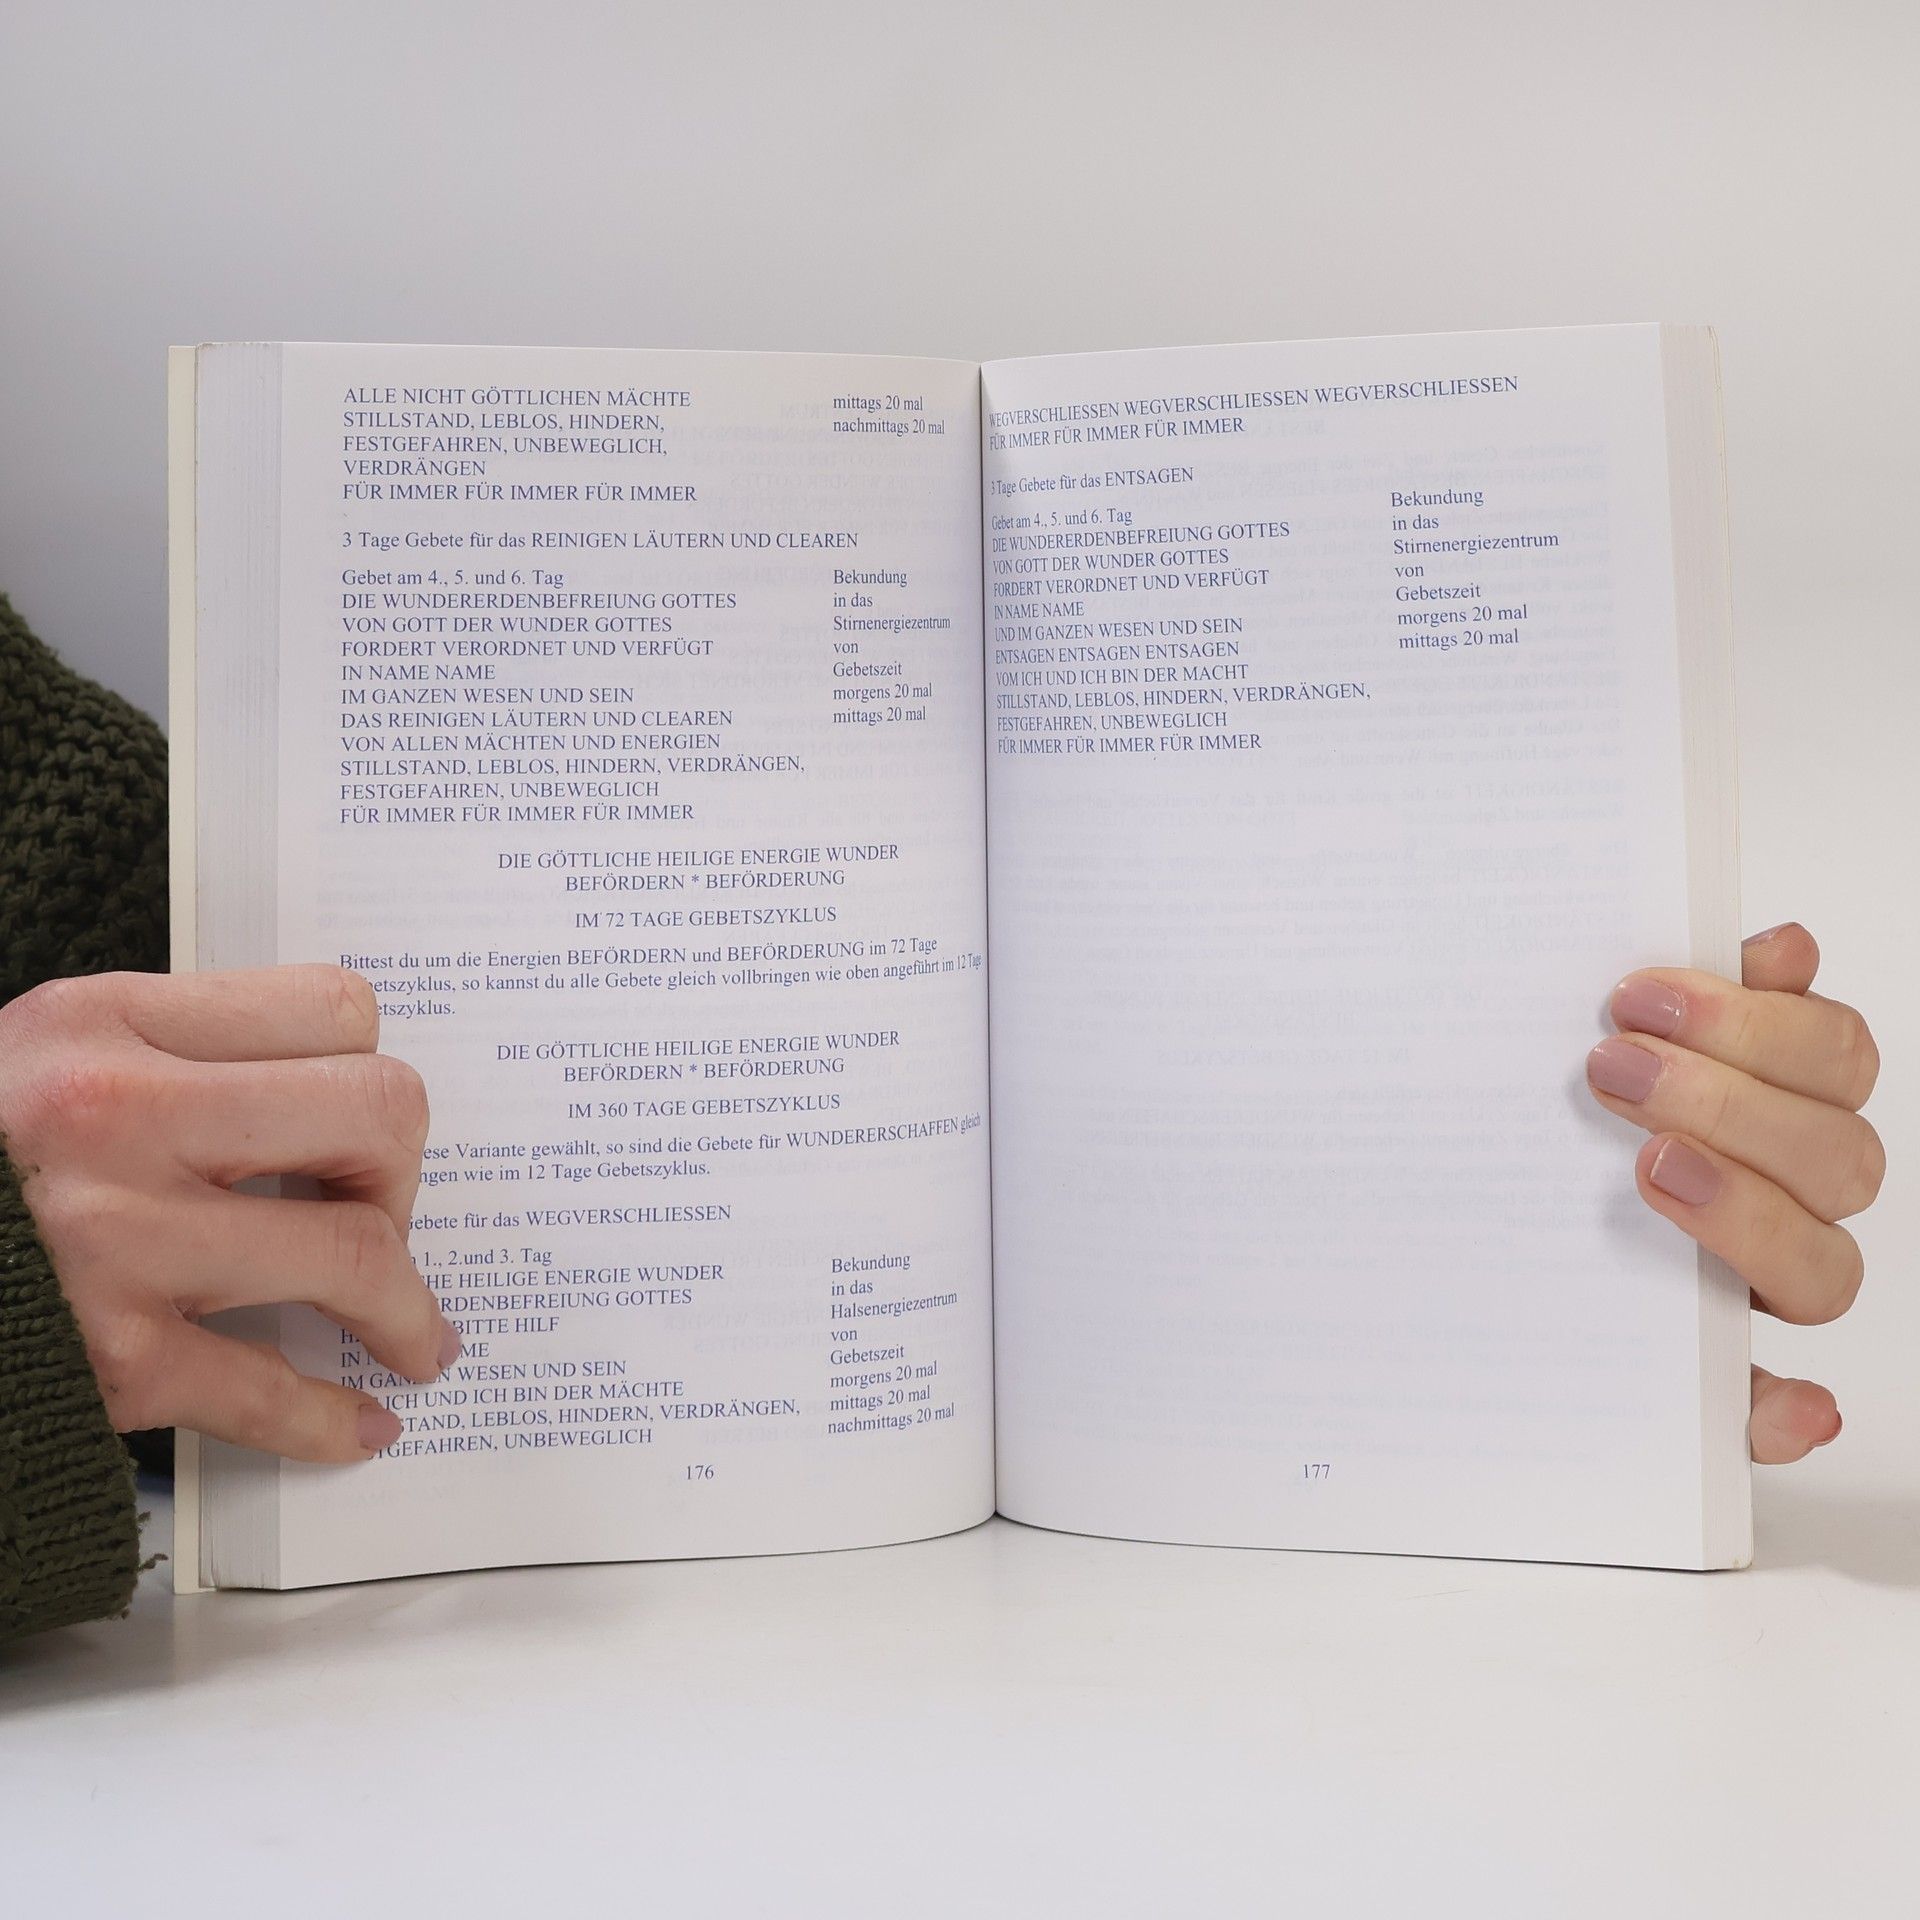 ALLE NICHT GÖTTLICHEN MÄCHTE
STILLSTAND, LEBLOS, HINDERN,
FESTGEFAHREN, UNBEWEGLICH,
VERDRÄNGEN
FÜR IMMER FÜR IMMER FÜR IMMER
mittags 20 mal
nachmittags 20 mal
3 Tage Gebete für das REINIGEN LÄUTERN UND CLEAREN
Gebet am 4., 5. und 6. Tag
DIE WUNDERERDENBEFREIUNG GOTTES
VON GOTT DER WUNDER GOTTES
FORDERT VERORDNET UND VERFÜGT
IN NAME NAME
IM GANZEN WESEN UND SEIN
DAS REINIGEN LÄUTERN UND CLEAREN
VON ALLEN MÄCHTEN UND ENERGIEN
STILLSTAND, LEBLOS, HINDERN, VERDRÄNGEN,
FESTGEFAHREN, UNBEWEGLICH
FÜR IMMER FÜR IMMER FÜR IMMER
Bekundung
in das
Stirnenergiezentrum
von
Gebetszeit
morgens 20 mal
mittags 20 mal
DIE GÖTTLICHE HEILIGE ENERGIE WUNDER
BEFÖRDERN * BEFÖRDERUNG
IM 72 TAGE GEBETSZYKLUS
Bittest du um die Energien BEFÖRDERN und BEFÖRDERUNG im 72 Tage
betszyklus, so kannst du alle Gebete gleich vollbringen wie oben angeführt im 12 Tage
etszyklus.
DIE GÖTTLICHE HEILIGE ENERGIE WUNDER
BEFÖRDERN * BEFÖRDERUNG
IM 360 TAGE GEBETSZYKLUS
ese Variante gewählt, so sind die Gebete für WUNDERERSCHAFFEN gleich
ngen wie im 12 Tage Gebetszyklus.
ebete für das WEGVERSCHLIESSEN
1., 2.und 3. Tag
HE HEILIGE ENERGIE WUNDER
RDENBEFREIUNG GOTTES
BITTE HILF
IN ME
IM GANZEN WESEN UND SEIN
ICH UND ICH BIN DER MÄCHTE
STAND, LEBLOS, HINDERN, VERDRÄNGEN,
GEFAHREN, UNBEWEGLICH
Bekundung
in das
Halsenergiezentrum
von
Gebetszeit
morgens 20 mal
mittags 20 mal
nachmittags 20 mal
176
WEGVERSCHLIESSEN WEGVERSCHLIESSEN WEGVERSCHLIESSEN
FÜR IMMER FÜR IMMER FÜR IMMER
3 Tage Gebete für das ENTSAGEN
Gebet am 4., 5. und 6. Tag
DIE WUNDERERDENBEFREIUNG GOTTES
VON GOTT DER WUNDER GOTTES
FORDERT VERORDNET UND VERFÜGT
IN NAME NAME
UND IM GANZEN WESEN UND SEIN
ENTSAGEN ENTSAGEN ENTSAGEN
VOM ICH UND ICH BIN DER MACHT
STILLSTAND, LEBLOS, HINDERN, VERDRÄNGEN,
FESTGEFAHREN, UNBEWEGLICH
FÜR IMMER FÜR IMMER FÜR IMMER
Bekundung
in das
Stirnenergiezentrum
von
Gebetszeit
morgens 20 mal
mittags 20 mal
177